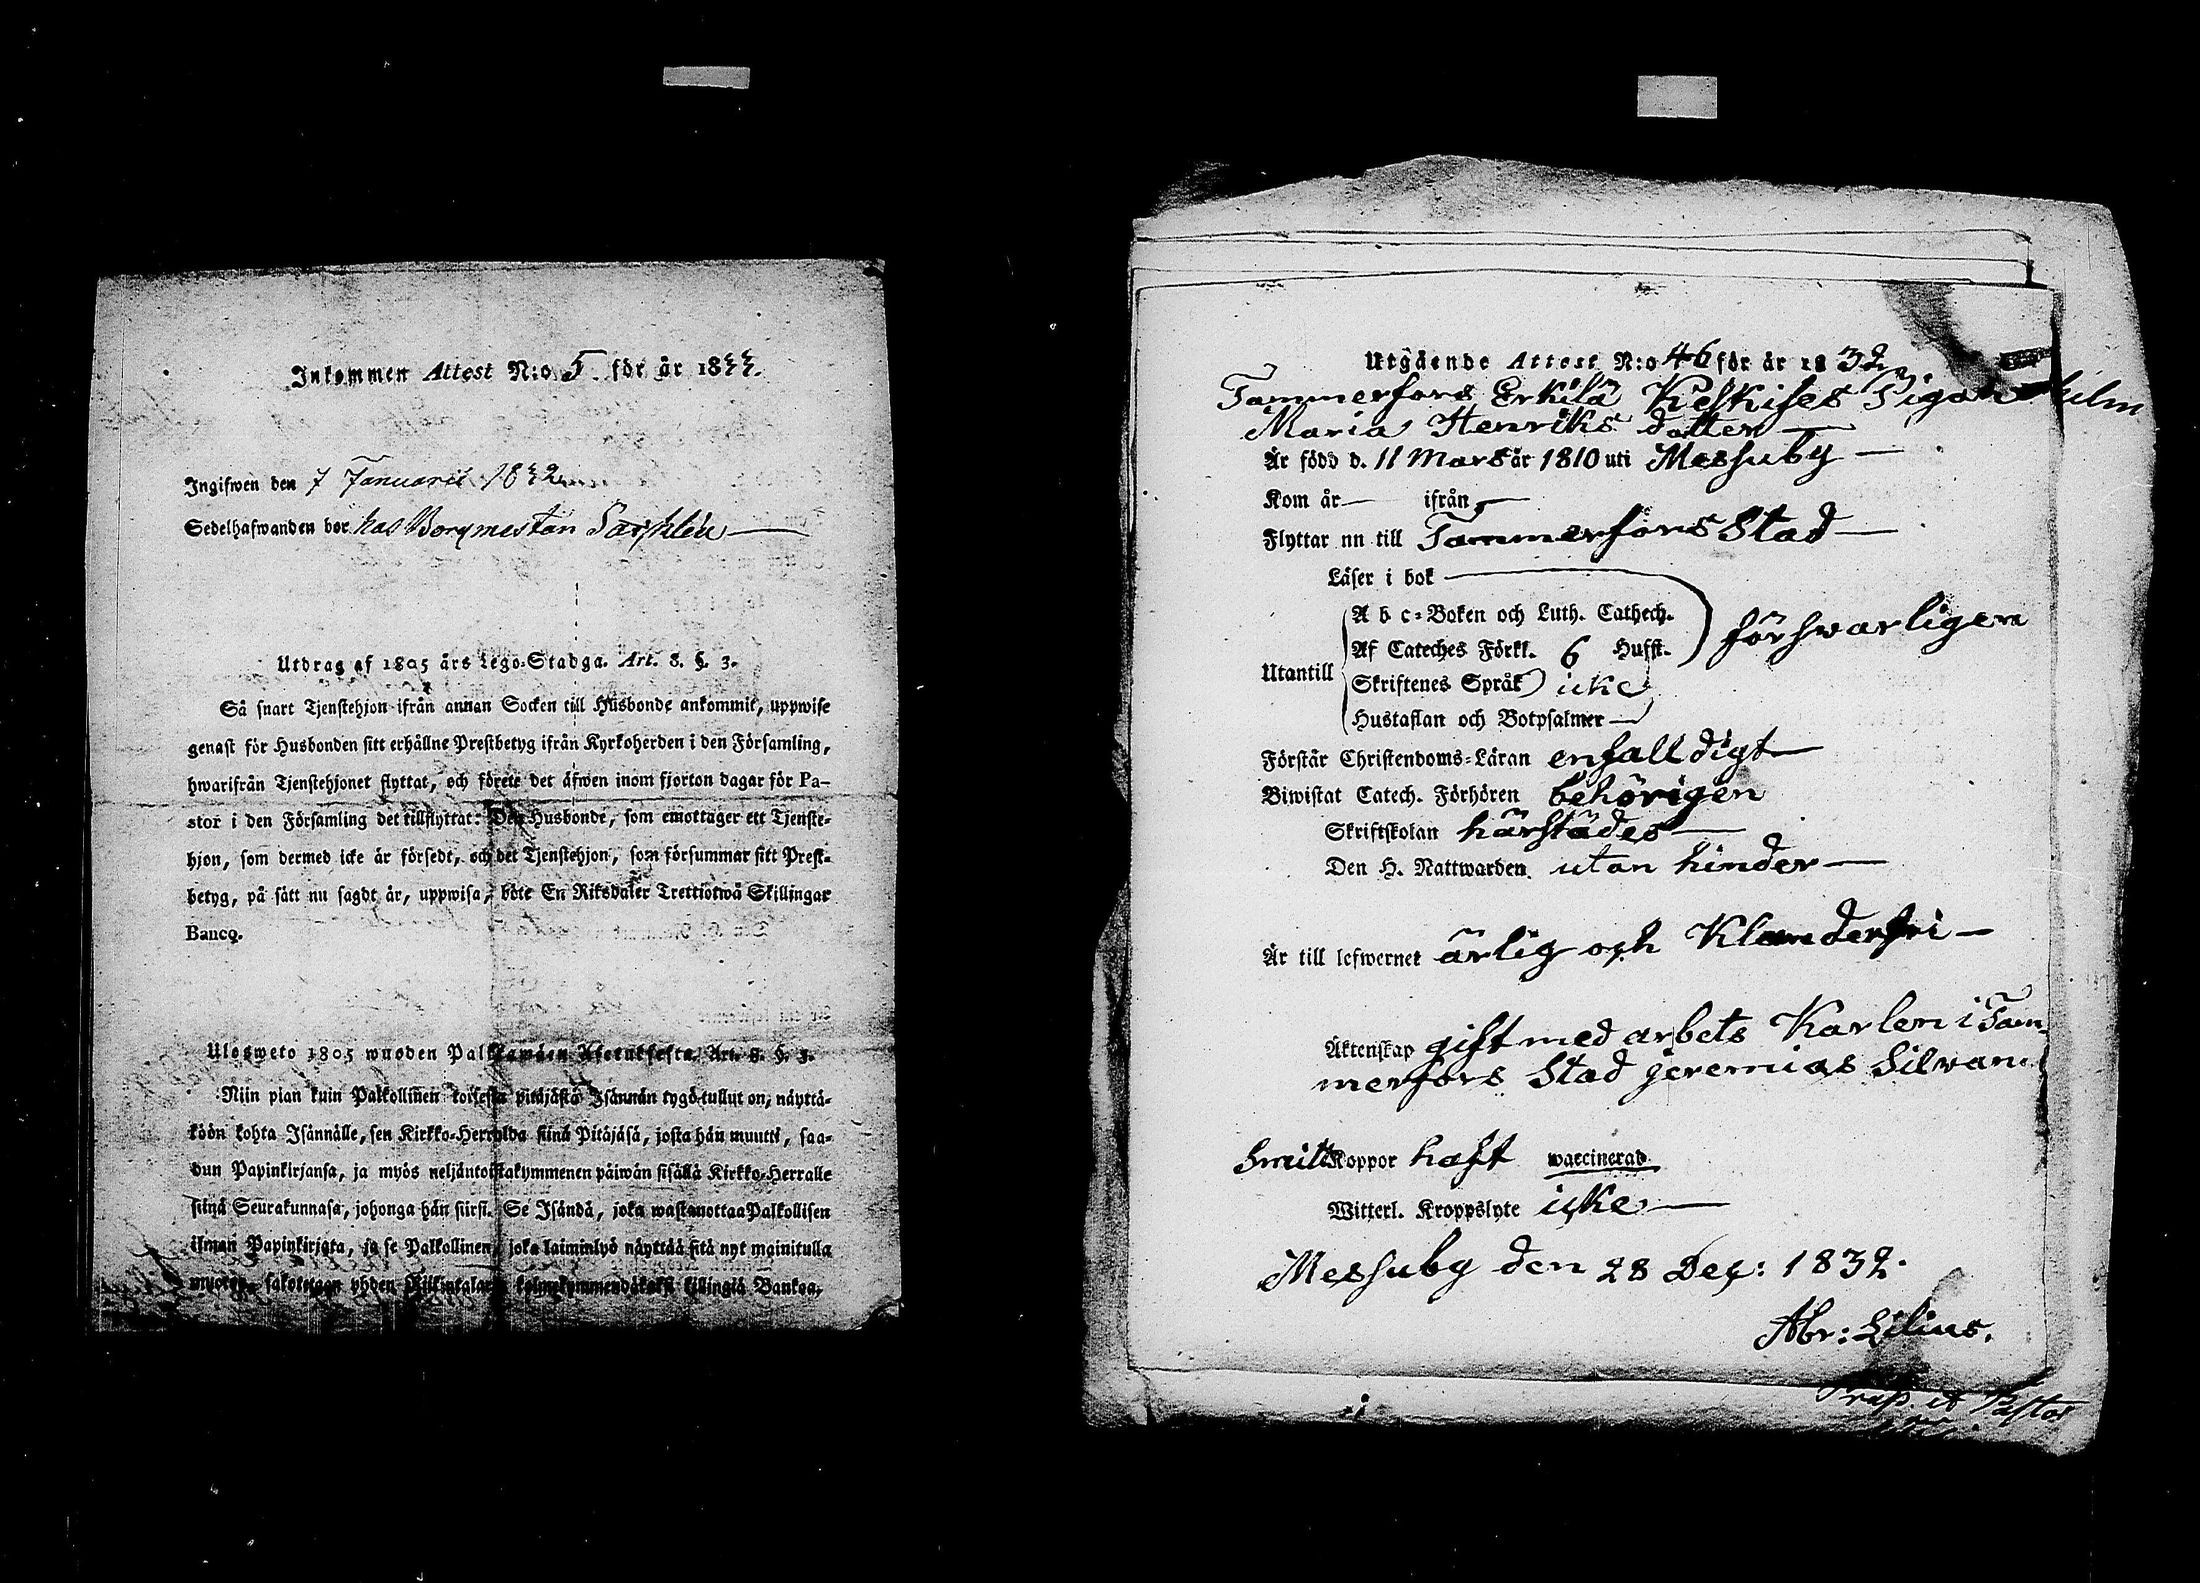 Inkommen Attest N:o 5 för år 1833.
Ingifwen den 7 Januarii 183
Sedelhafwanden bor hos Borgmestan
Utdrag af 1805 års Lego-Stadga. Art. 8. §. 3.
Så snart Tjenstehjon ifrån annan Socken till Husbonde ankommit, uppwise
genast för Husbonden sitt erhållne Prestbetyg ifrån Kyrkoherden i den Församling,
hwarifrån Tjenstehjonet flyttat, och förete det äfwen inom fjorton dagar för Pa-
stor i den Församling det tillflyttat: Den Husbonde, som emottager ett Tjenste-
hjon, som dermed icke är försedt, och det Tjenstehjon, som försummar sitt Prest-
betyg, på sätt nu sagdt är, uppwisa, böte En Riksdaler Trettiotwå Skillingar
Banco.
Ulosweto 1805 wuoden Palkkawäen Asetuksesta. Art. 8. §. 3.
Niin pian kuin Palkollinen toisesta pitäjästä Isännän tygö tullut on, näyttä-
köön kohta Isännälle, sen Kirkko-Herralda siinä Pitäjäsä, josta hän muutti, saa-
dun Papinkirjansa, ja myös neljäntoistakymmenen päiwän sisällä Kirkko-Herralle
siinä Seurakunnasa, johonga hän siirsi. Se Isändä, joka wastanottaa Palkollisen
ilman Papinkirjata, ja se Palkollinen, joka laiminlyö näyttää sitä nyt mainitulla
muoton, sakotetaan yhden Riikintalarin kolmekymmendäkaksi killingiä Bankoa,
Utgående Attest N:o 46 för år 1832
Tammerfors Erkilä Keskises Pigan
Maria Henriks dotter —
Är född d. 11 Mars år 1810 uti Messuby —
Kom år — ifrån —
Flyttar nu till Tammerfors Stad —
Läser i bok
A b c-Boken och Luth. Cathech.
förswarligen
Af Cateches Förkl. 6 Hufst.
Utantill
Skriftenes Språk icke
Hustaflan och Botpsalmer —
Förstår Christendoms-Läran enfalldigt —
Biwistat Catech. Förhören behörigen
Skriftskolan härstädes —
Den H. Nattwarden utan hinder —
Är till lefwernet ärlig och Klanderfri —
Äktenskap gift med arbets Karlen i Tam-
merfors Stad Jeremias Silvan
Smitt Koppor haft waccinerad
Witterl. Kroppslyte icke —
Messuby den 28 Dec: 1832.
Abr: Lilius.
Præp. et Pastor